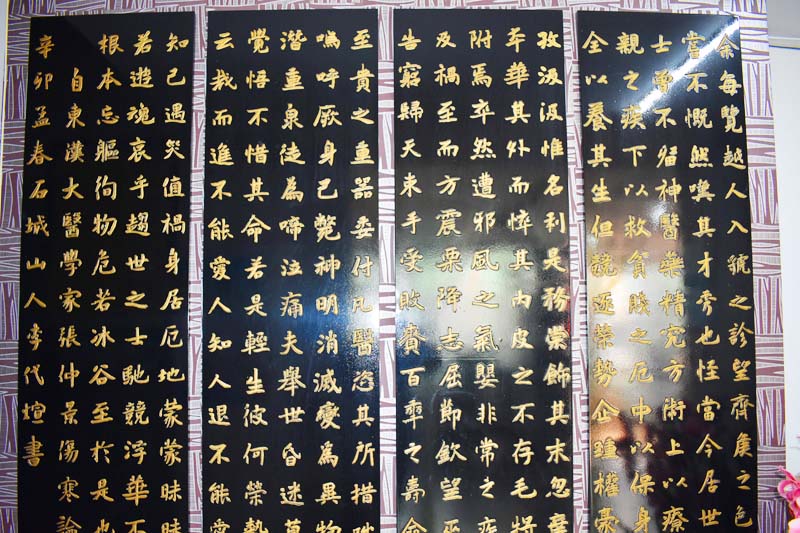 余每覽越人入虢之診望齊侯之色
嘗不慨然嘆其才秀也怪當今居世
士曾不留神醫藥精究方術上以療
親之疾下以救貧賤之厄中以保身
全以養其生但競逐榮勢企踵權豪
孜汲汲惟名利是務崇飾其末忽棄
夲華其外而悴其內皮之不存毛將
附焉卒然遭邪風之氣嬰非常之疾
及禍至而方震栗降志屈節欽望巫
告窮歸天束手受敗賚百年之壽命
至貴之重器委付凡醫恣其所措咄
嗚呼厥身已斃神明消滅變為異物
潛重泉徒為啼泣痛夫舉世昏迷莫
覺悟不惜其命若是輕生彼何榮勢
云哉而進不能愛人知人退不能愛
知己遇災值禍身居厄地蒙蒙昧昧
若遊魂哀乎趨世之士馳競浮華不
根本忘軀徇物危若冰谷至於是也
自東漢大醫學家張仲景傷寒論
辛卯孟春石城山人李代煊書